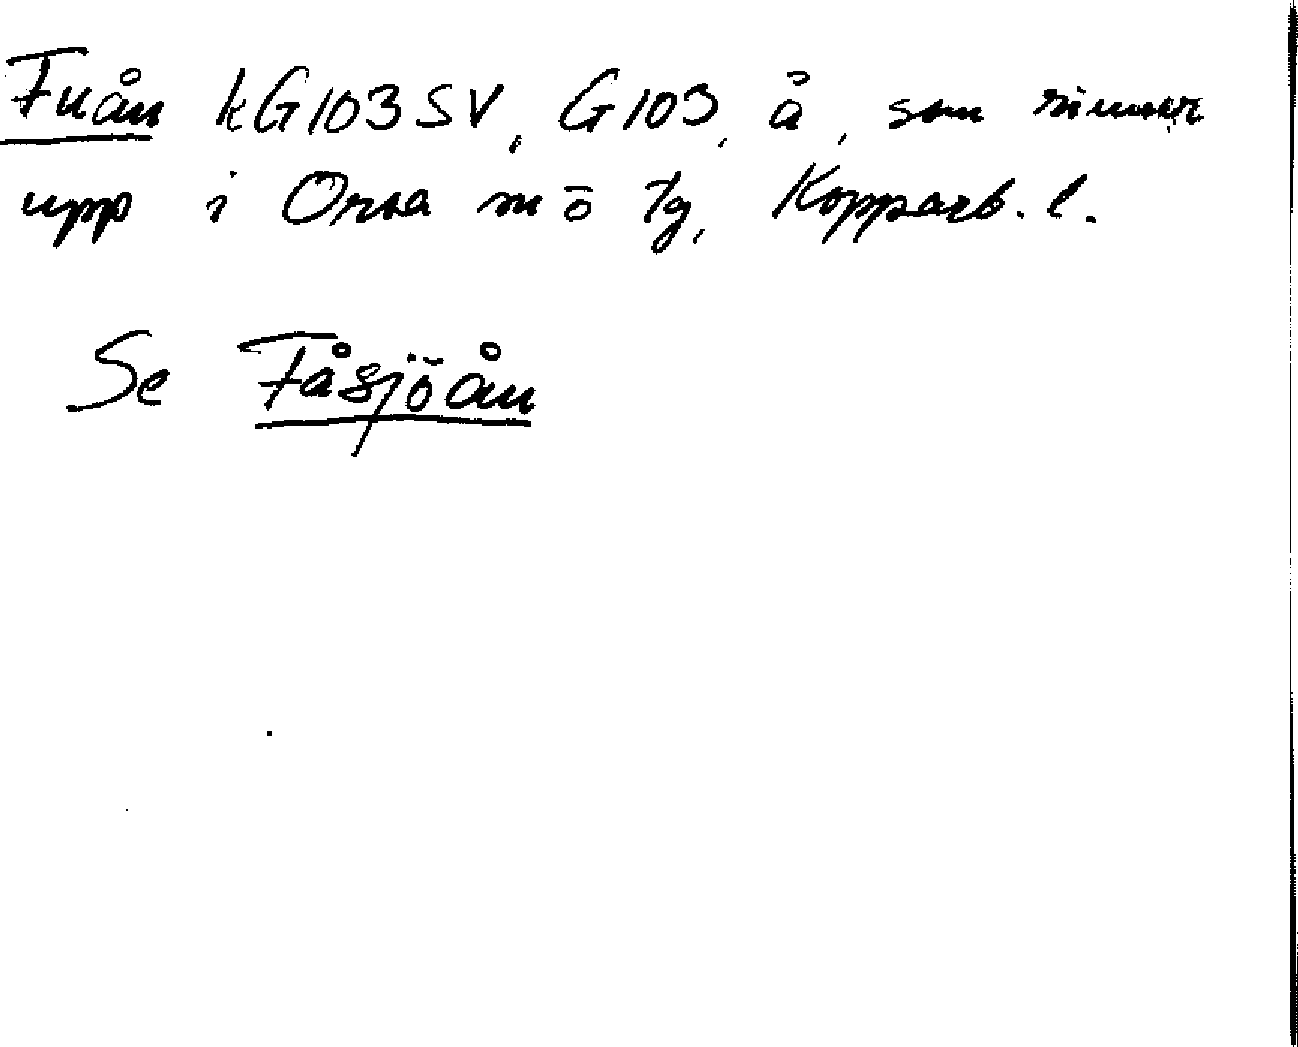 Fuån kG103SV, G103, å, som rinner
upp i Orsa m o tg, Kopparb. l.
Se Fåsjöån